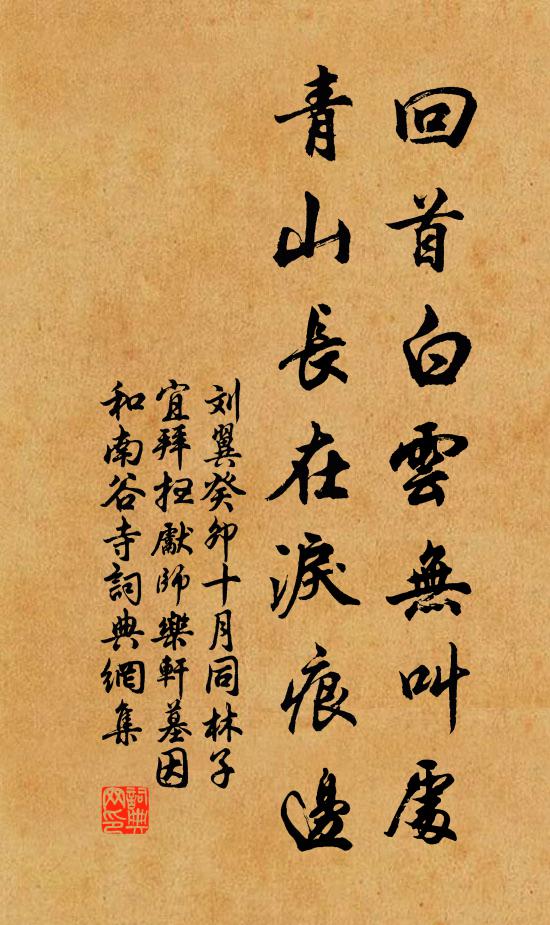 回首白雲無叫處
青山長在淚痕邊
刘翼癸卯十月同林子
宜拜扫獻師樂軒墓因
和南谷寺詞典網集
詞典网印